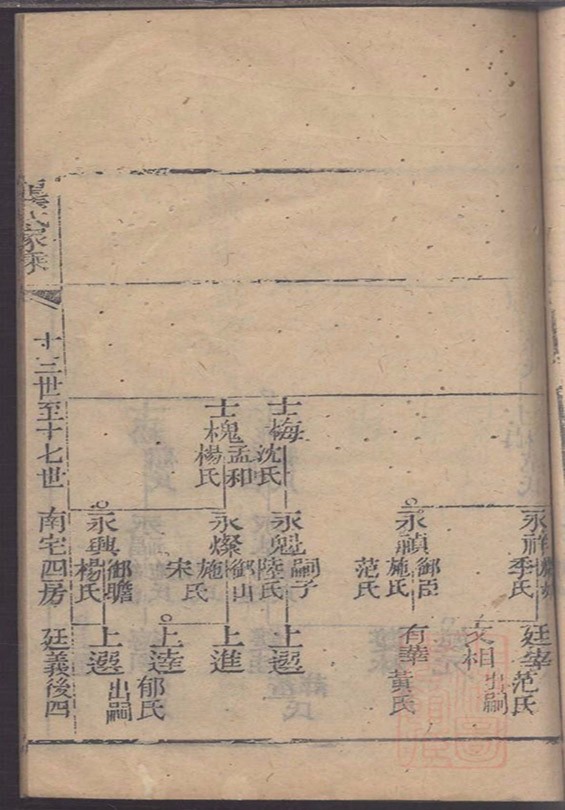 永祥
李氏
廷宰
范氏
文相
出嗣
永禎
御臣
施氏
范氏
有華
黃氏
士梅
沈氏
永魁
嗣子
陸氏
上選
士槐
孟和
楊氏
永燦
御山
施氏
宋氏
上進
上逵
郁氏
永興
御瞻
楊氏
上選
出嗣
氏家乘
十三世至十七世
南宅四房
廷義後四